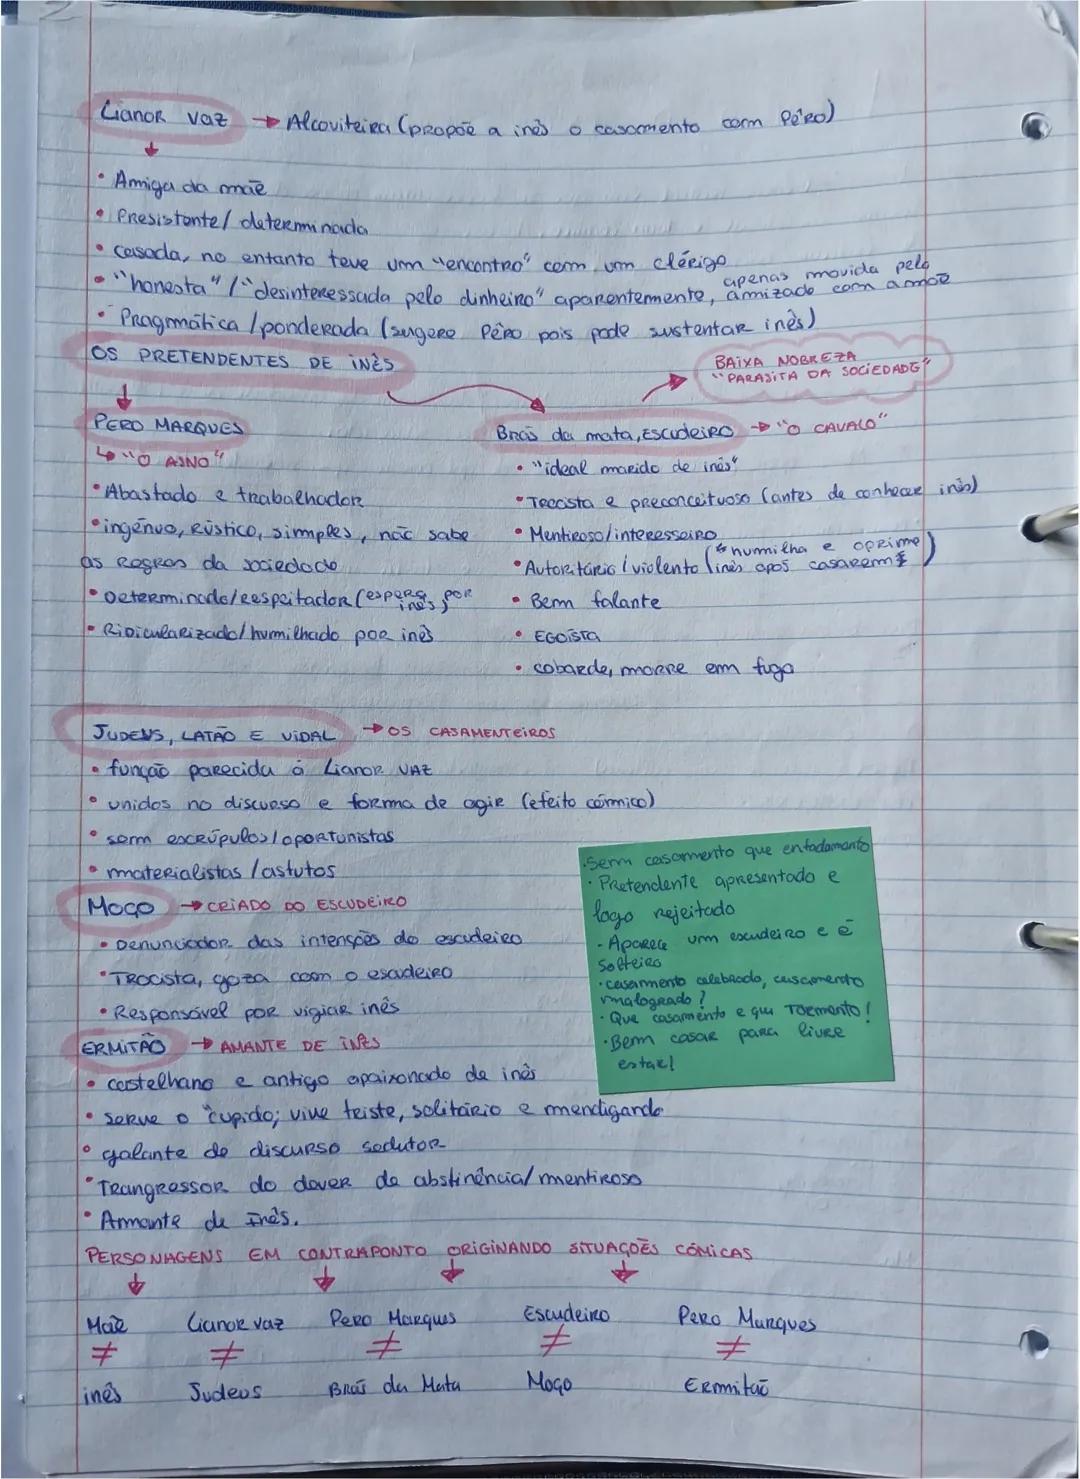 Lianor Vaz → Alcoviteira (propõe a inês o casamento com Pêro)
• Amiga da mãe
• Presistente/ determinada
• casada, no entanto teve um "encontro" com um clérigo
• "honesta" / "desinteressada pelo dinheiro" aparentemente, apenas movida pela amizade com a mãe
• Pragmática / ponderada (sugere Pêro pois pode sustentar inês)
OS PRETENDENTES DE INÊS
BAIXA NOBREZA
"PARASITA DA SOCIEDADE"
PERO MARQUES
↳ "O ASNO"
• Abastado e trabalhador
• ingénuo, Rústico, simples, não sabe
as regras da sociedade
• Determinado/respeitador (espera por inês)
• Ridicularizado/humilhado por inês
Brás da mata, Escudeiro → "O CAVALO"
• "ideal marido de inês"
• Trocista e preconceituoso (antes de conhecer inês)
• Mentiroso/interesseiro
• Autoritário / violento (humilha e oprime inês após casarem)
• Bem falante
• EGOÍSTA
• cobarde, morre em fuga
JUDEUS, LATÃO E VIDAL → OS CASAMENTEIROS
• função parecida á Lianor VAZ
• unidos no discurso e forma de agir (efeito cómico)
• sem escrúpulos/oportunistas
• materialistas /astutos
MOÇO → CRIADO DO ESCUDEIRO
• Denunciador das intenções do escudeiro
• Trocista, goza com o escudeiro
• Responsável por vigiar inês
ERMITÃO → AMANTE DE INÊS
• castelhano e antigo apaixonado de inês
• serve o "cupido; vive triste, solitário e mendigando
• galante de discurso sedutor
• Trangressor do dever de abstinência/ mentiroso
• Amante de Inês.
• Sem casamento que enfadamento
• Pretendente apresentado e
logo rejeitado
• Aparece um escudeiro e é
solteiro
• casamento celebrado, casamento
malogrado?
• Que casamento e que Tormento!
• Bem casar para livre
estar!
PERSONAGENS EM CONTRAPONTO ORIGINANDO SITUAÇÕES CÓMICAS
Mãe Lianor vaz Pero Marques Escudeiro Pero Marques
≠ ≠ ≠ ≠ ≠
inês Judeus Brás da Mata Moço Ermitão